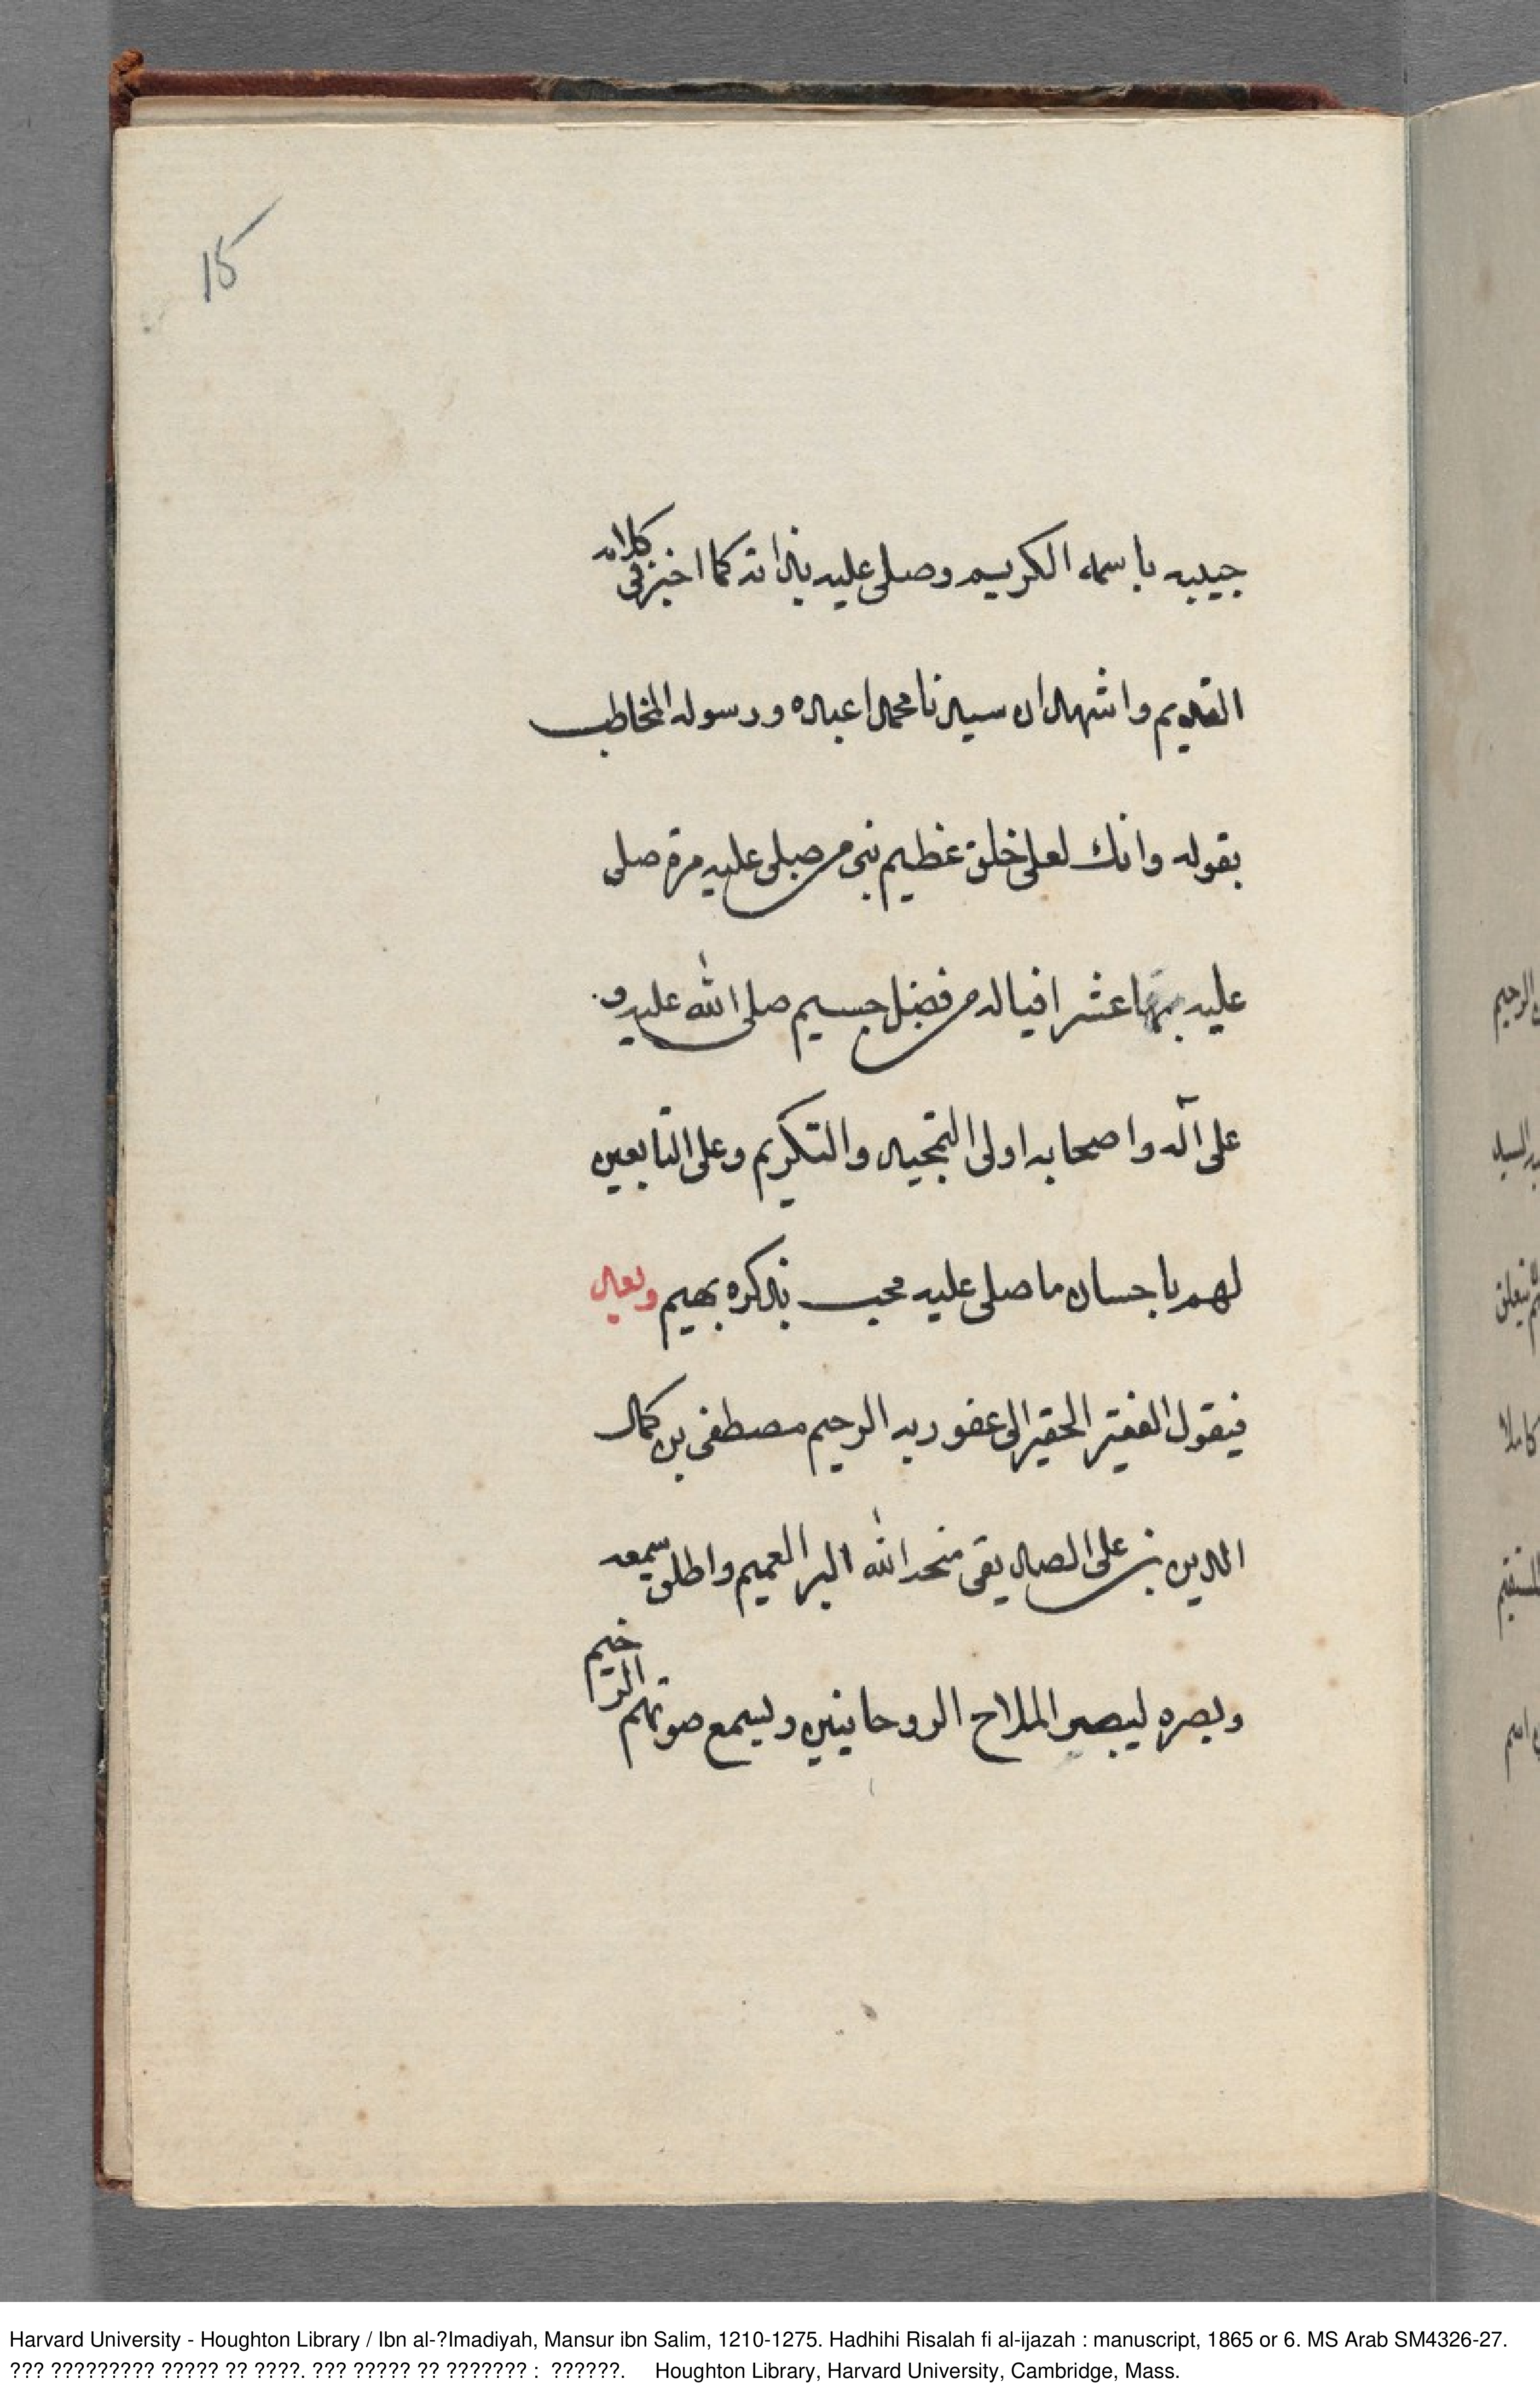 15
حبيبه باسمه الكريم وصلى عليه بذاته كما اخبر في كلامه
القديم واشهد ان سيدنا محمدا عبده ورسوله المخاطب
بقوله وانك لعلى خلق عظيم نبى من صلى عليه مرة صلى
عليه بها عشرا فياله من فضل جسيم صلى الله عليه و
على آله واصحابه اولى التمجيد والتكريم وعلى التابعين
لهم باحسان ما صلى عليه محب بذكره يهيم وبعد
فيقول الفقير الحقير الى عفو ربه الرحيم مصطفى بن كمال
الدين بن على الصديقى منحه الله البر العميم واطلق سمعه
وبصره ليبصر الملاح الروحانيين ويسمع صوتهم الرخيم
Harvard University - Houghton Library / Ibn al-?Imadiyah, Mansur ibn Salim, 1210-1275. Hadhihi Risalah fi al-ijazah : manuscript, 1865 or 6. MS Arab SM4326-27.
??? ????????? ????? ?? ????. ??? ????? ?? ??????? : ??????. Houghton Library, Harvard University, Cambridge, Mass.